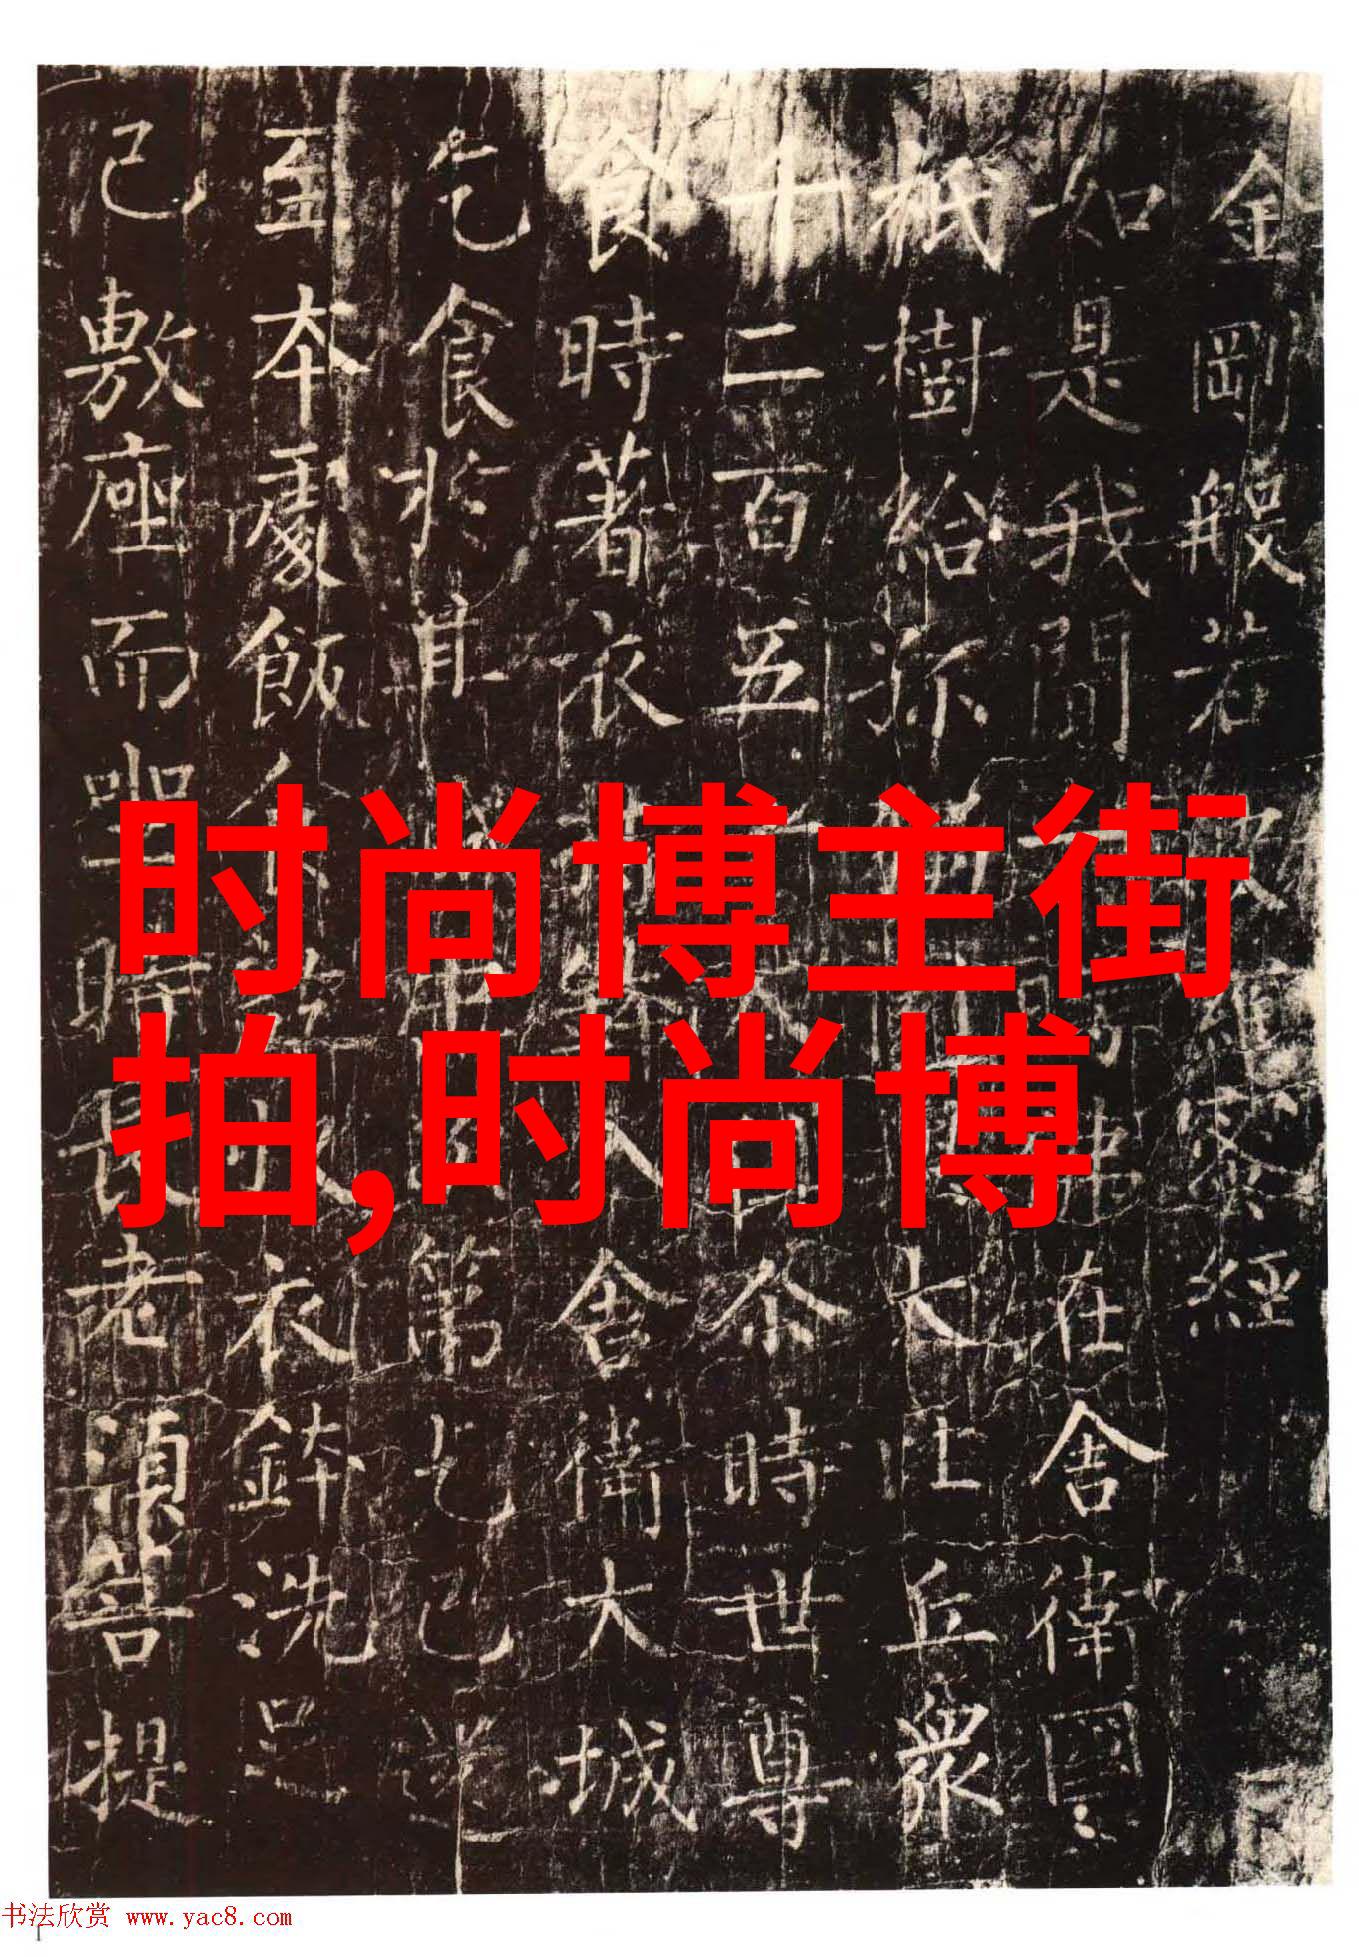 金剛般若蜜經
如是我聞佛在舍衛國
祇樹給孤大比丘眾
千二百五尒時世尊
食時著衣入舍衛大城
乞食於其中第乞已還
至本處飯衣鉢洗足
已敷座而坐時長老須菩提
时尚博主街
拍,时尚博
书法欣赏 www.yac8.com